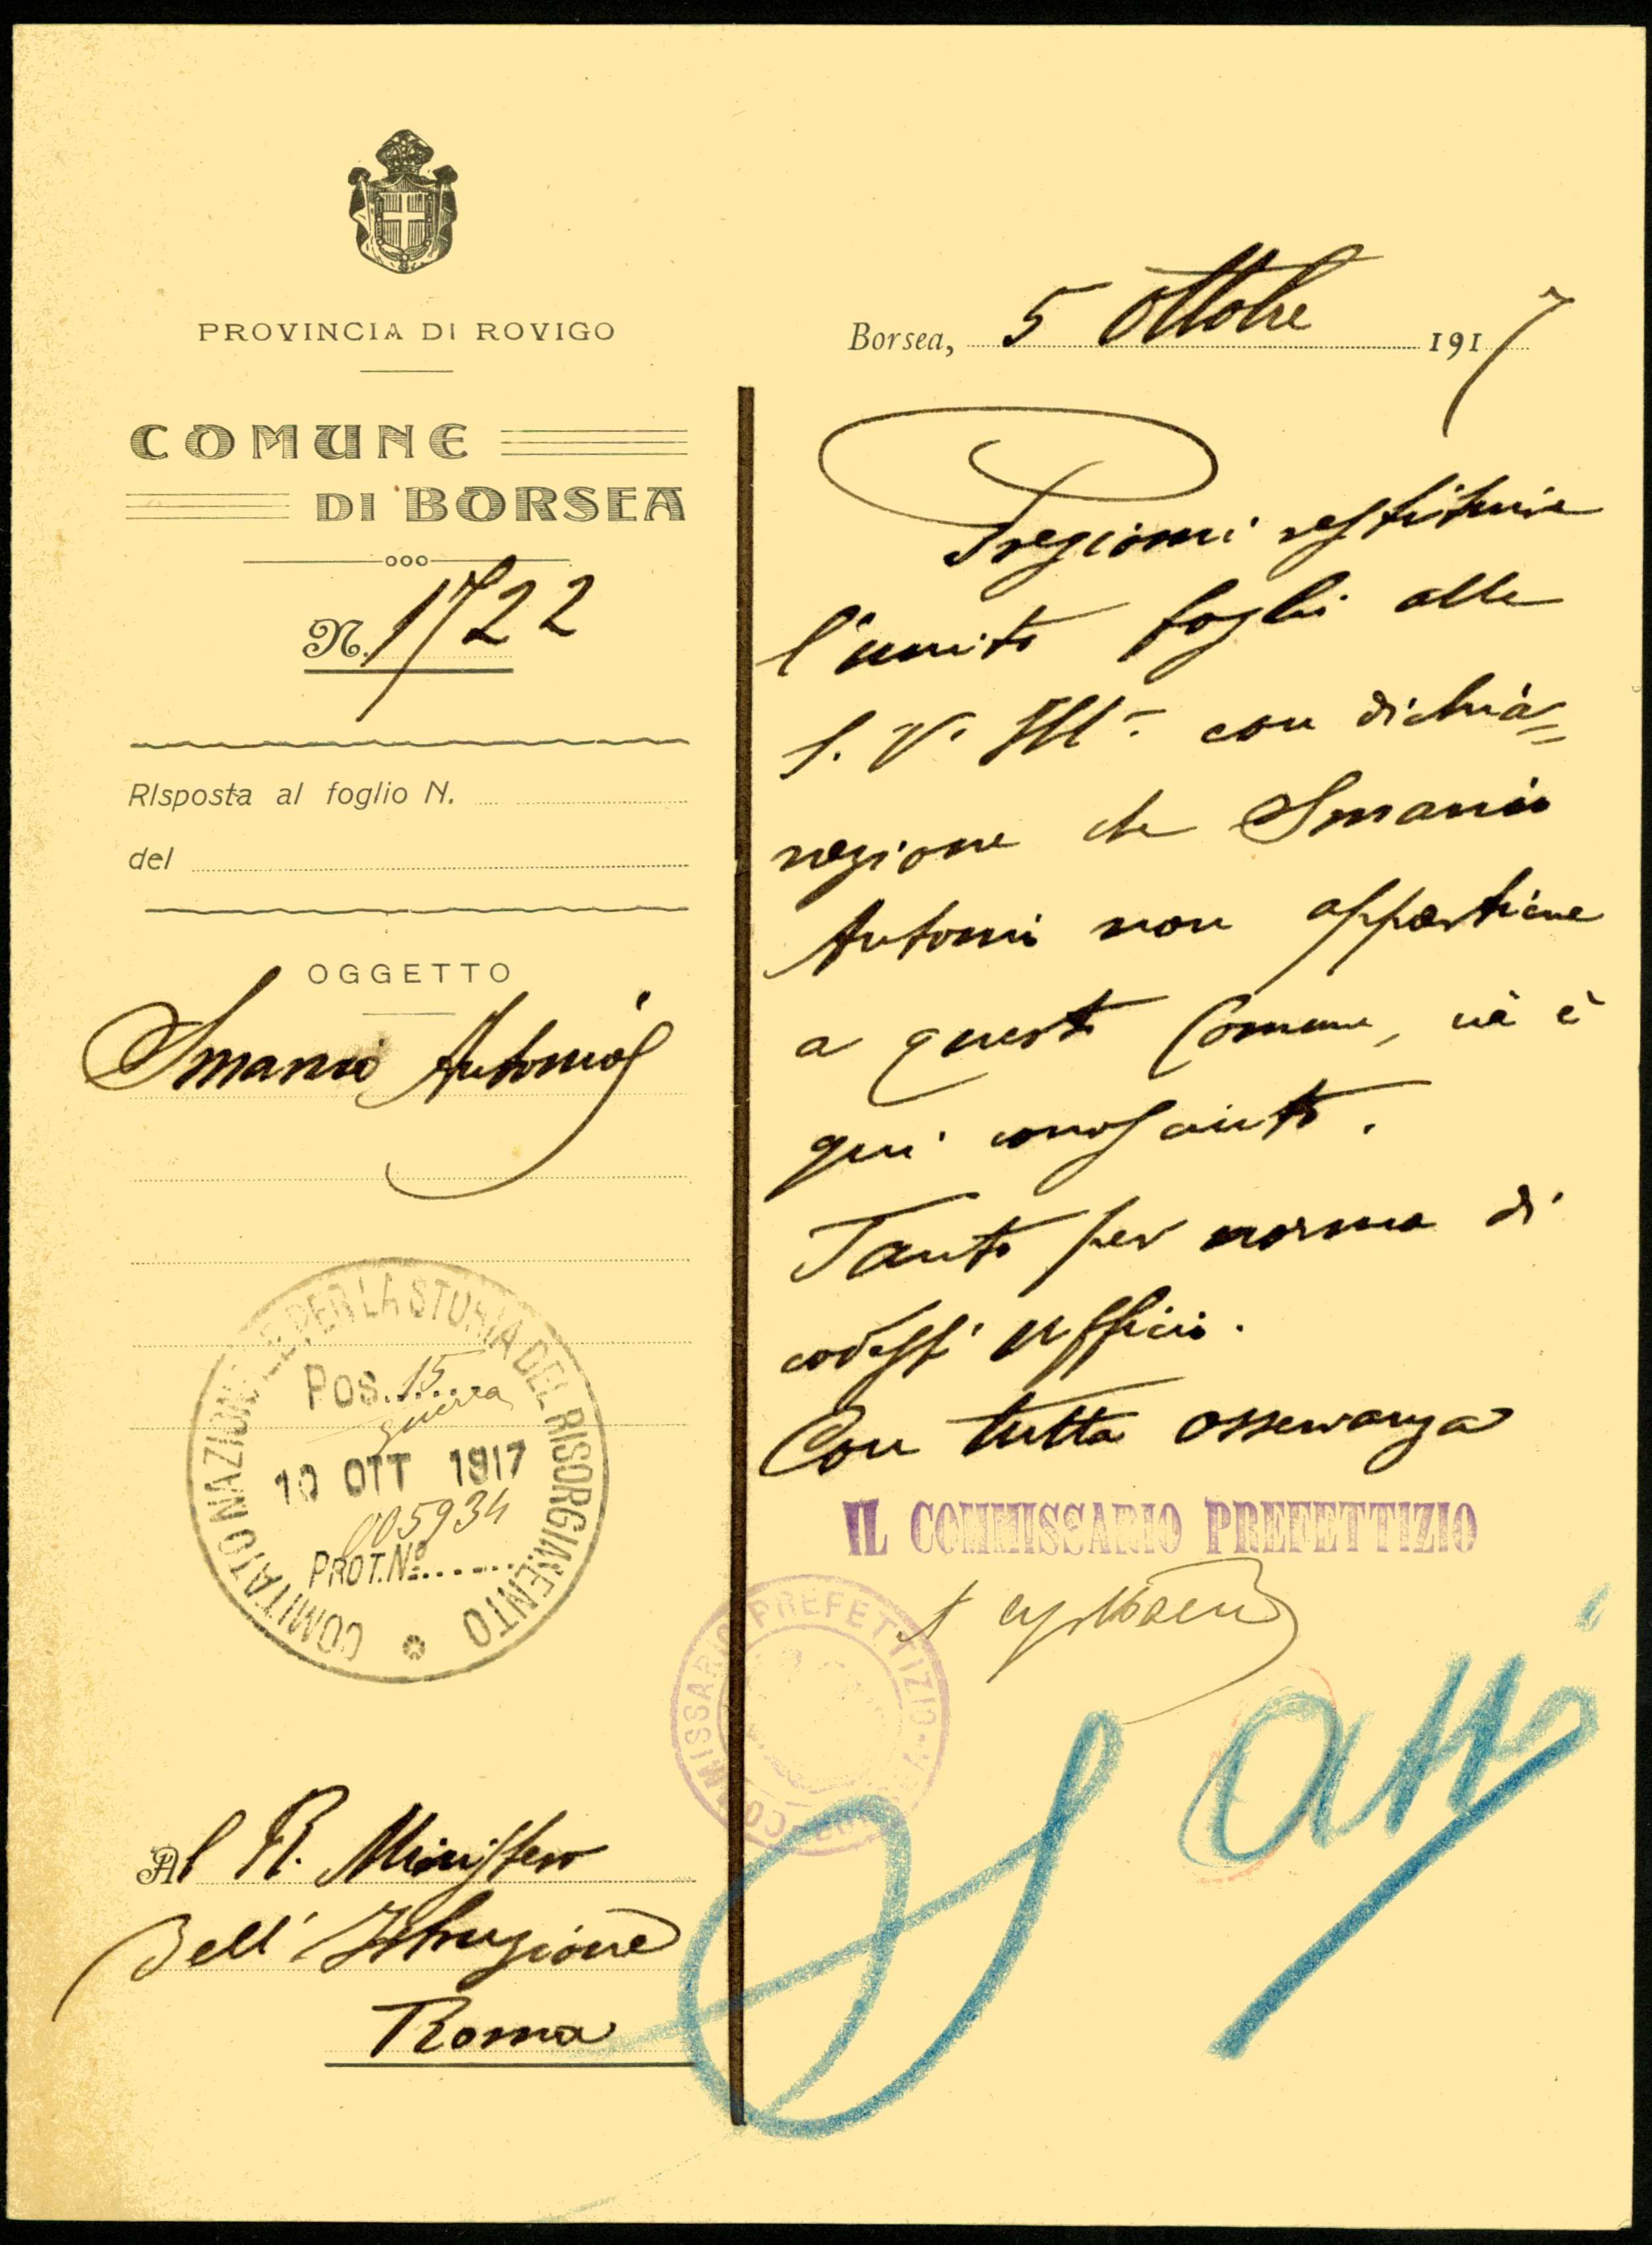 PROVINCIA DI ROVIGO
COMUNE
DI BORSEA
N. 1722
Risposta al foglio N.
del
OGGETTO
Smanio Antonio
COMITATO NAZIONALE PER LA STORIA DEL RISORGIMENTO
Pos. 15
guerra
10 OTT 1917
005934
PROT. Nº
Al R. Ministero
Dell' Istruzione
Roma
Borsea, 5 Ottobre 1917
Pregiomi restituire
l'unito foglio alla
S. V. Ill. con dichia=
razione che Smanio
Antonio non appartiene
a questo Comune, nè è
qui conosciuto.
Tanto per norma di
codesto Ufficio.
Con tutta osservanza
IL COMMISSARIO PREFETTIZIO
COMMISSARIO PREFETTIZIO
atti